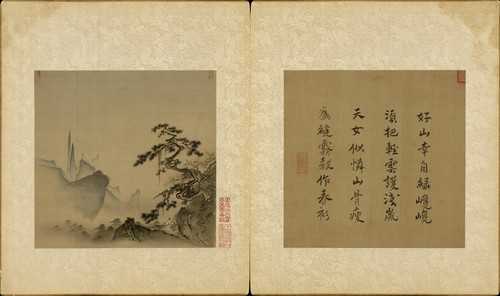 好山幸自綠巉巉
須把輕雲護淺嵐
天女似憐山骨瘦
為縫霧縠作春衫